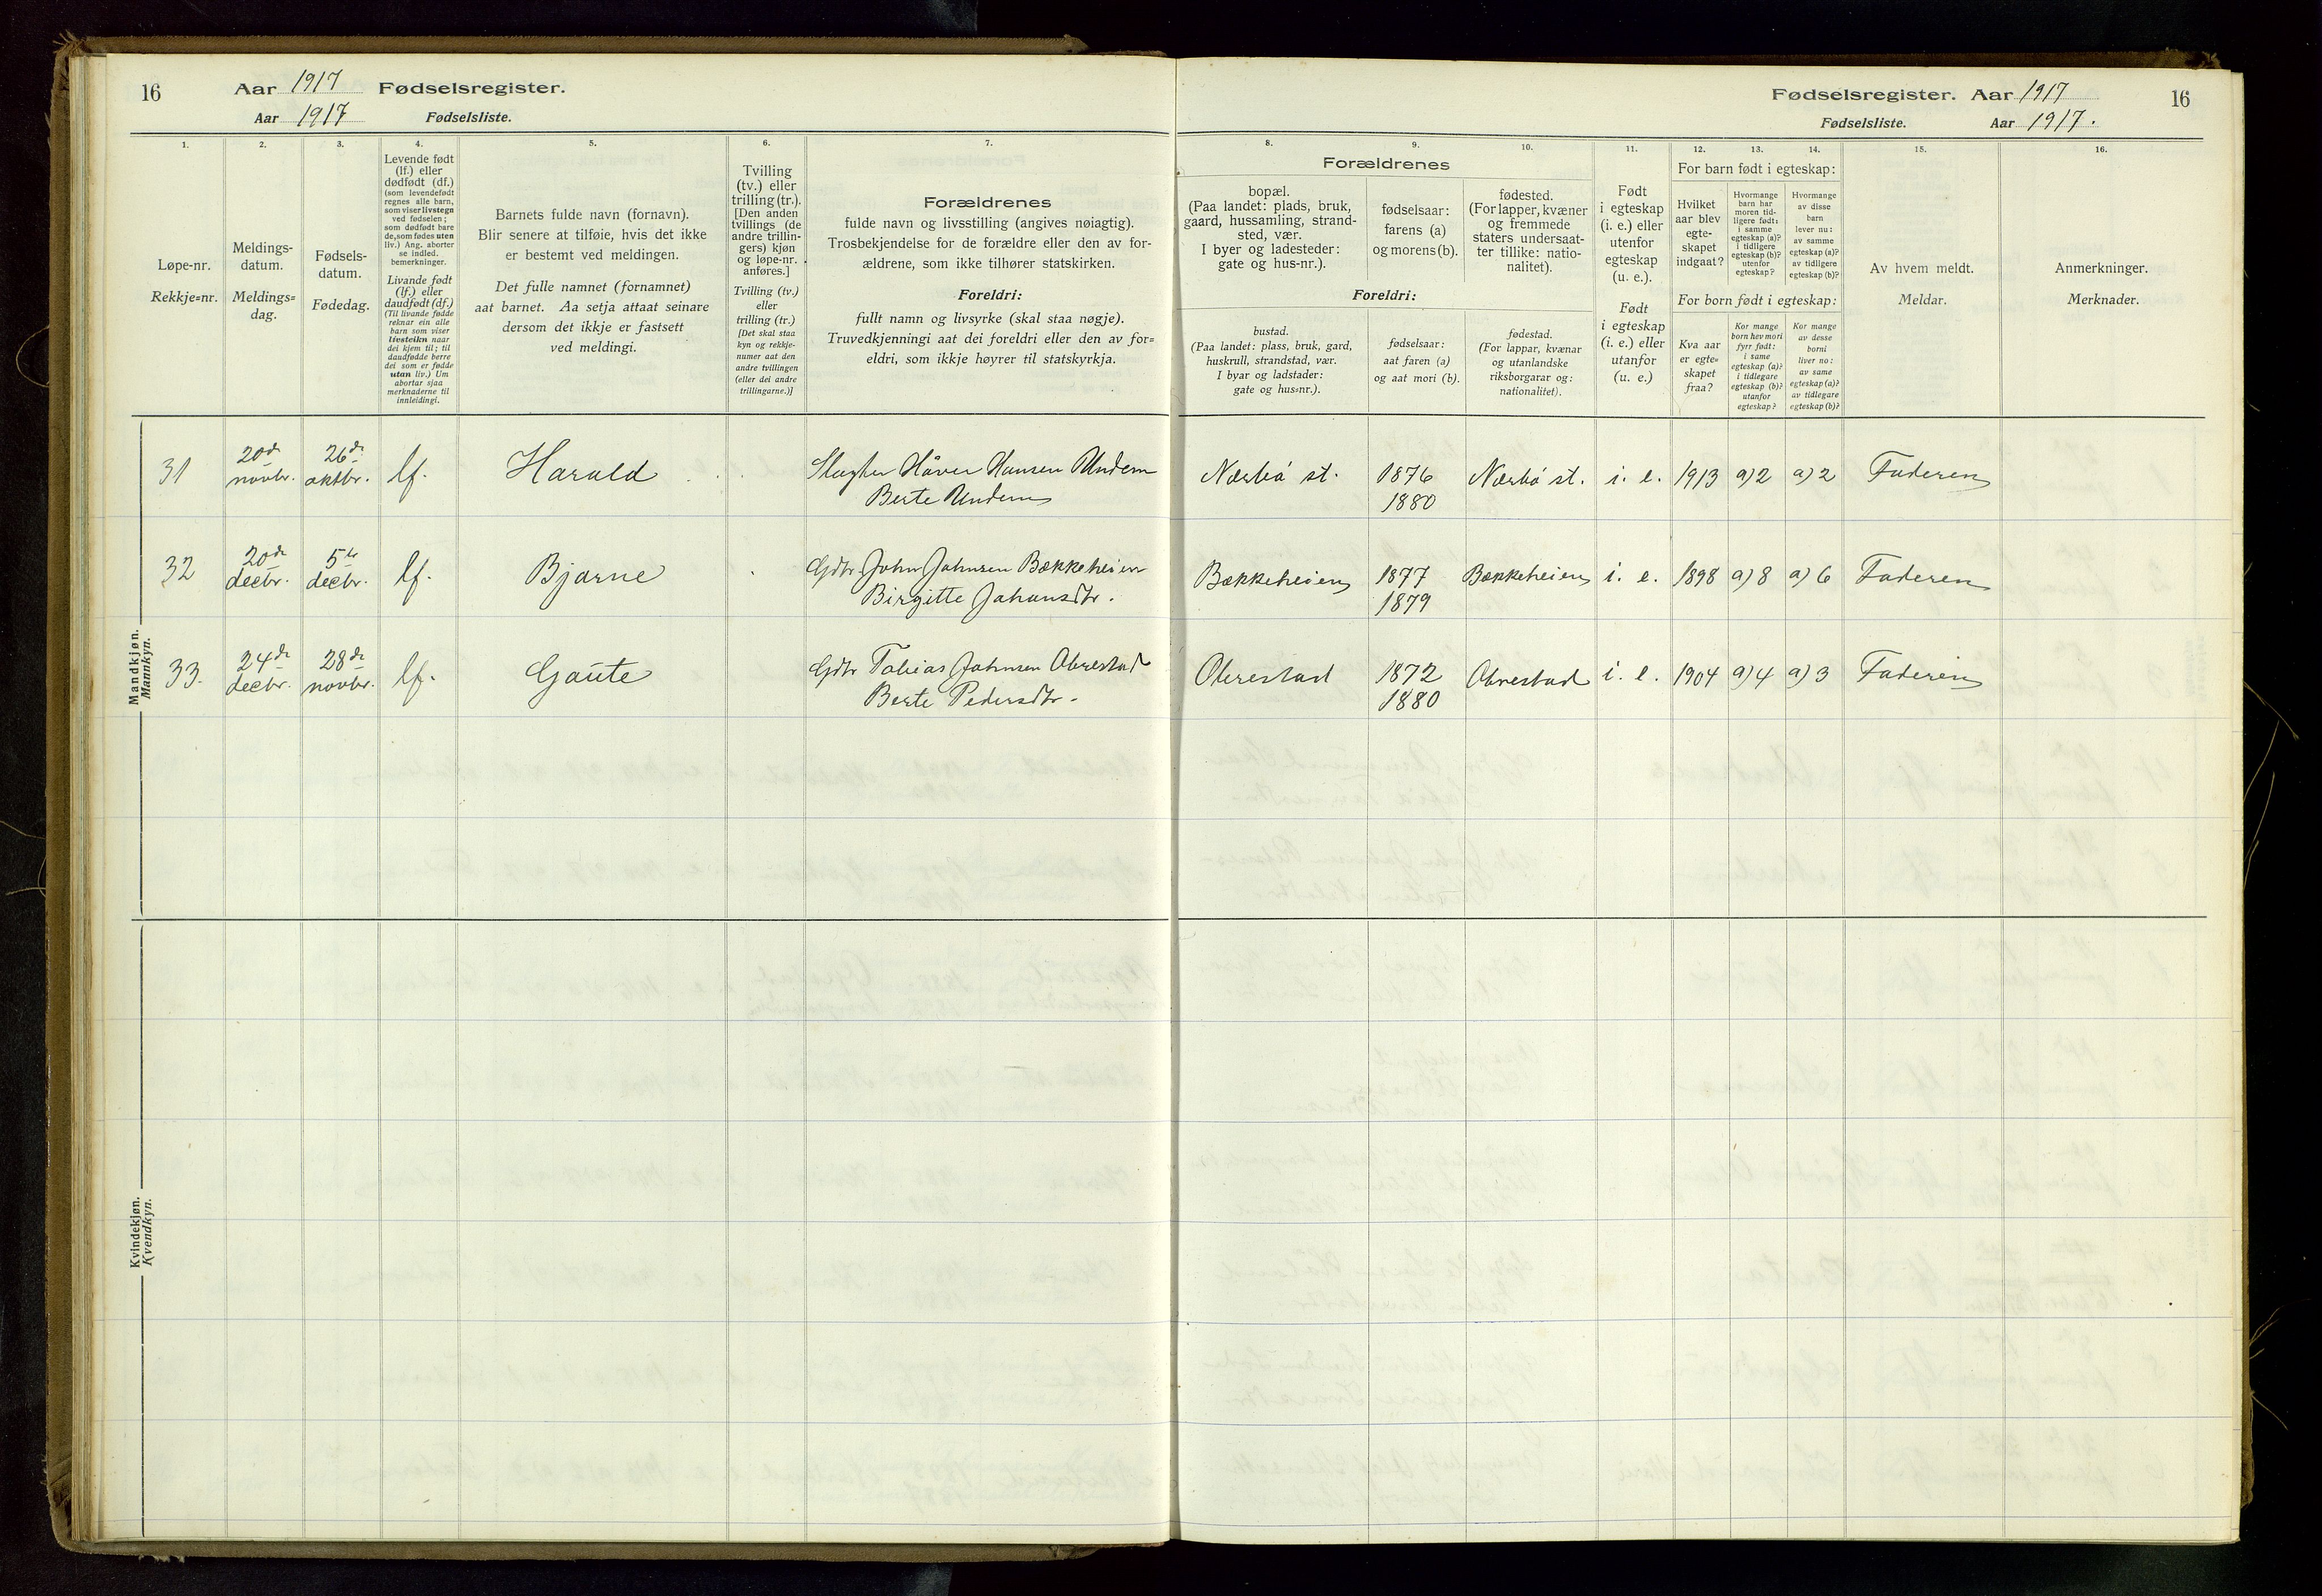 16 Aar 1917 Fødselsregister.
Aar 1917 Fødselsliste.
Fødselsregister. Aar 1917 16
Fødselsliste. Aar 1917.
1.
Løpe-nr.
Rekkje=nr.
2.
Meldings-
datum.
Meldings=
dag.
3.
Fødsels-
datum.
Fødedag.
4.
Levende født
(lf.) eller
dødfødt (df.)
(som levendefødt
regnes alle barn,
som viser livstegn
ved fødselen;
som dødfødt bare
de, som fødes uten
liv.) Ang. aborter
se indled.
bemerkninger.
Livande født
(lf.) eller
daudfødt (df.)
(Til livande fødde
reknar ein alle
barn som viser
livsteikn naar
dei kjem til; til
daudfødde berre
dei som er fødde
utan liv.) Um
abortar sjaa
merknaderne til
innleidingi.
5.
Barnets fulde navn (fornavn).
Blir senere at tilføie, hvis det ikke
er bestemt ved meldingen.
Det fulle namnet (fornamnet)
aat barnet. Aa setja attaat seinare
dersom det ikkje er fastsett
ved meldingi.
6.
Tvilling
(tv.) eller
trilling (tr.).
[Den anden
tvillings (de
andre trillin-
gers) kjøn
og løpe-nr.
anføres.]
Tvilling (tv.)
eller
trilling (tr.)
[Det skal staa
kyn og rekkje-
numer aat den
andre tvillingen
(eller dei andre
trillingarne.)]
7.
Forældrenes
fulde navn og livsstilling (angives nøiagtig).
Trosbekjendelse for de forældre eller den av for-
ældrene, som ikke tilhører statskirken.
Foreldri:
fullt namn og livsyrke (skal staa nøgje).
Truvedkjenningi aat dei foreldri eller den av for=
eldri, som ikkje høyrer til statskyrkja.
Forældrenes
8.
bopæl.
(Paa landet: plads, bruk,
gaard, hussamling, strand-
sted, vær.
I byer og ladesteder:
gate og hus-nr.).
9.
fødselsaar:
farens (a)
og morens (b).
10.
fødested.
(For lapper, kvæner
og fremmede
staters undersaat-
ter tillike: natio-
nalitet).
Foreldri:
bustad.
(Paa landet: plass, bruk, gard,
huskrull, strandstad, vær.
I byar og ladstader:
gate og hus=nr.).
fødselsaar:
aat faren (a)
og aat mori (b).
fødestad.
(For lappar, kvænar
og utanlandske
riksborgarar og:
nationalitet).
11.
Født
i egteskap
(i. e.) eller
utenfor
egteskap
(u. e.).
Født
i egteskap
(i. e.) eller
utanfor
(u. e.)
12. 13. 14.
For barn født i egteskap:
Hvilket
aar blev
egte-
skapet
indgaat?
Hvormange
barn har
moren tid-
ligere født:
i samme
egteskap (a)?
i tidligere
egteskap (b)?
utenfor
egteskap?
Hvormange
av disse
barn
lever nu:
av samme
egteskap (a)?
av tidligere
egteskap (b)?
For born født i egteskap:
Kva aar
er egte=
skapet
fraa?
Kor mange
born hev mori
fyrr født:
i same
egteskap (a)?
i tidlegare
egteskap (b)?
utanfor
egteskap?
Kor mange
av desse
borni
liver no:
av same
egteskap (a)?
av tidlegare
egteskap (b)?
15.
Av hvem meldt.
Meldar.
16.
Anmerkninger.
Merknader.
Mandkjøn.
Mannkyn.
31 20de novbr. 26de oktbr. lf. Harald Slagter Håver Hansen Undem Nærbö st. 1876 Nærbö st. i. e. 1913 a) 2 a) 2 Faderen
Berte Undem 1880
32 20de decbr. 5te decbr. lf. Bjarne Gdbr John Johnsen Bækkeheien Bækkeheien 1877 Bækkeheien i. e. 1898 a) 8 a) 6 Faderen
Birgitte Johansdtr. 1879
33. 24de decbr. 28de novbr. lf. Gaute Gdbr Tobias Johnsen Obrestad Obrestad 1872 Obrestad i. e. 1904 a) 4 a) 3 Faderen
Berte Pedersdtr. 1880
Kvindekjøn.
Kvendkyn.